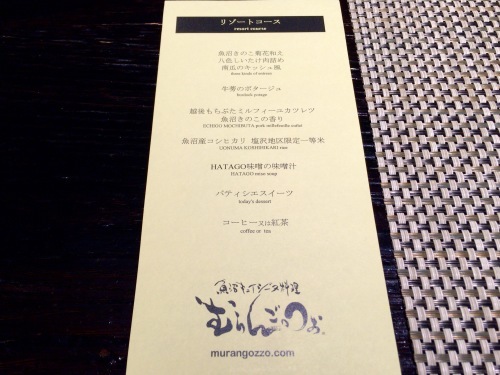 リゾートコース
resort course
魚沼きのこ菊花和え
八色しいたけ肉詰め
南瓜のキッシュ風
three kinds of entrees
牛蒡のポタージュ
burdock potage
越後もちぶたミルフィーユカツレツ
魚沼きのこの香り
ECHIGO MOCHIBUTA pork millefeuille cutlet
魚沼産コシヒカリ 塩沢地区限定一等米
UONUMA-KOSHIHIKARI rice
HATAGO味噌の味噌汁
HATAGO miso soup
パティシエスイーツ
today's dessert
コーヒー又は紅茶
coffee or tea
魚沼キュイジーヌ料理
むらんごっつぉ
murangozzo.com